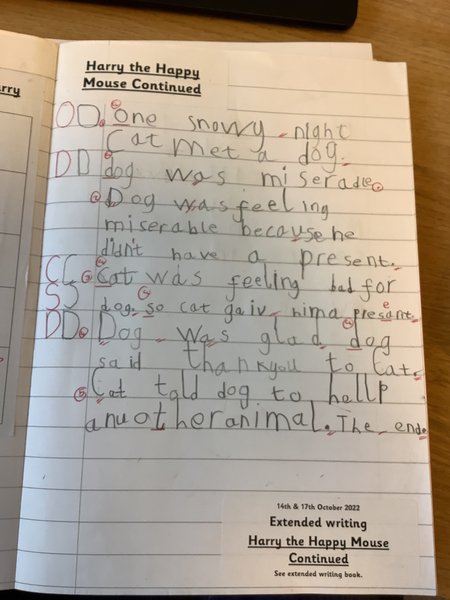 rry
Harry the Happy
Mouse Continued
OO. One snowy night
Cat met a dog.
DD dog was miserable.
Dog was feeling
miserable because he
didn't have a present.
CC Cat was feeling bad for
SS dog. So cat gaiv hima presant.
DD. Dog was glad dog
said thankyou to Cat.
Cat told dog to hellp
anuother animal. The end.
14th & 17th October 2022
Extended writing
Harry the Happy Mouse
Continued
See extended writing book.